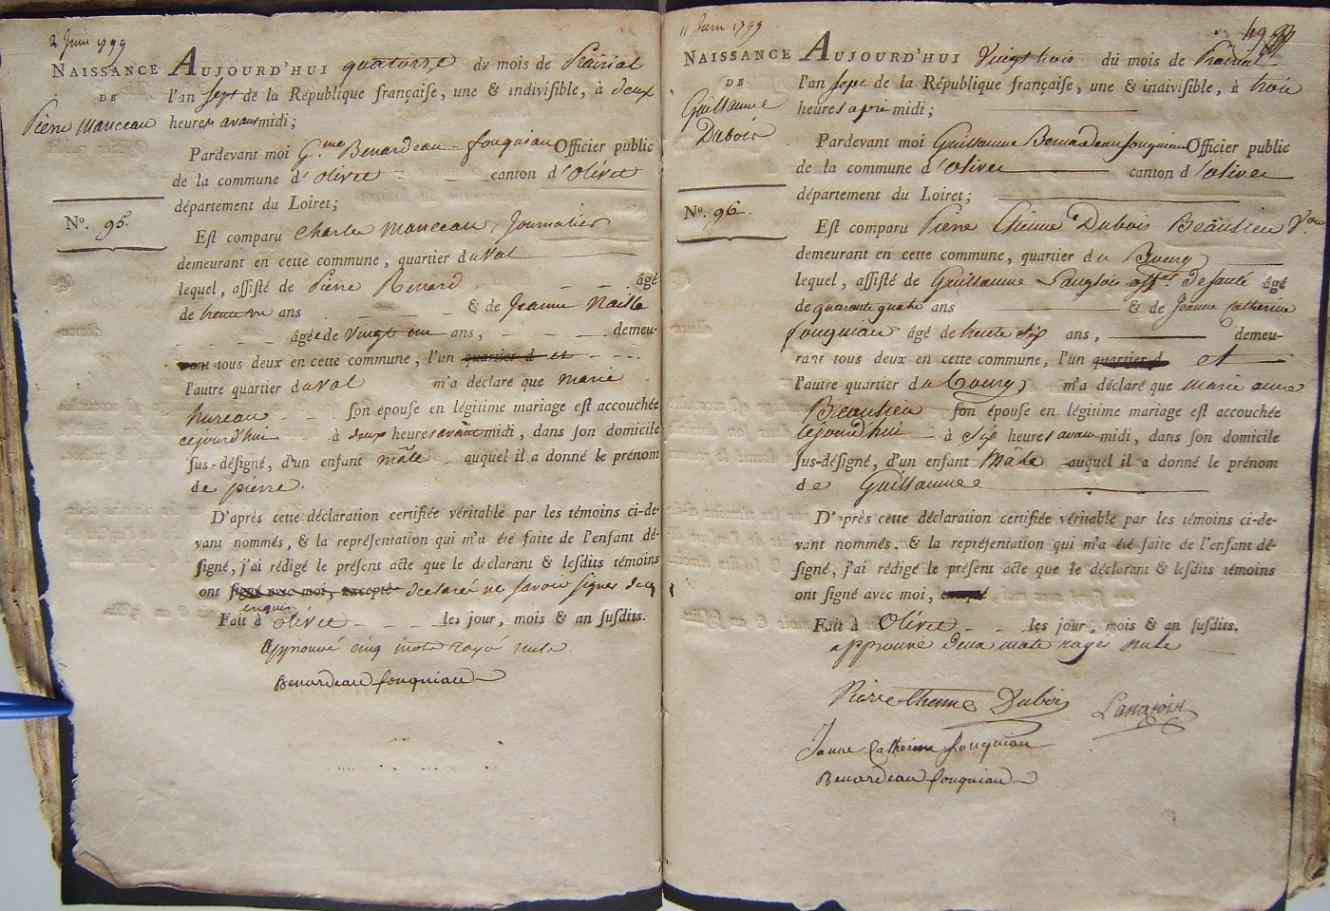 2 Juin 1799
NAISSANCE
DE
Pierre Manceau
N°. 95.
AUJOURD'HUI quatorze du mois de Prairial
l'an sept de la République françaiſe, une & indiviſible, à deux
heures avant midi;
Pardevant moi G.me Benardeau-fouquiau Officier public
de la commune d'olivet canton d'Olivet
département du Loiret;
Eſt comparu Charles Manceau, Journalier
demeurant en cette commune, quartier du Val
lequel, aſſiſté de Pierre Renard âgé
de trente un ans & de Jeanne
âgée de vingt un ans, demeu-
rant tous deux en cette commune, l'un quartier d et
l'autre quartier du Val m'a déclaré que marie
hureau ſon épouſe en légitime mariage eſt accouchée
cejourd'hui à deux heures avant midi, dans ſon domicile
ſus-déſigné, d'un enfant mâle auquel il a donné le prénom
de pierre.
D'après cette déclaration certifiée véritable par les témoins ci-de-
vant nommés, & la repréſentation qui m'a été faite de l'enfant dé-
ſigné, j'ai rédigé le préſent acte que le déclarant & leſdits témoins
ont ſigné avec moi, excepté declaré ne savoir signer de ce
enquis
Fait à olivet les jour, mois & an ſuſdits.
Approuvé cinq mots rayé nuls.
Benardeau fouquiau
11 Juin 1799
NAISSANCE
DE
Guillaume
Dubois
N°. 96.
AUJOURD'HUI Vingt trois du mois de Prairial
l'an sept de la République françaiſe, une & indiviſible, à trois
heures après midi;
Pardevant moi Guillaume Benardeau fouquiau Officier public
de la commune d'olivet canton d'olivet
département du Loiret;
Eſt comparu Pierre Etienne Dubois Beaulieu
demeurant en cette commune, quartier du Bourg
lequel, aſſiſté de Guillaume Langlois off.er de santé âgé
de quarante quatre ans & de Jeanne Catherine
fouquiau âgé de trente six ans, demeu-
rant tous deux en cette commune, l'un quartier d et
l'autre quartier du bourg, m'a déclaré que Marie anne
Beaulieu ſon épouſe en légitime mariage eſt accouchée
cejourd'hui à six heures avant midi, dans ſon domicile
ſus-déſigné, d'un enfant Mâle auquel il a donné le prénom
de Guillaume
D'après cette déclaration certifiée véritable par les témoins ci-de-
vant nommés, & la repréſentation qui m'a été faite de l'enfant dé-
ſigné, j'ai rédigé le préſent acte que le déclarant & leſdits témoins
ont ſigné avec moi, excepté
Fait à Olivet les jour, mois & an ſuſdits.
approuvé deux mots rayés nuls
Pierre Etienne Dubois
Jeanne Catherine fouquiau
Benardeau fouquiau